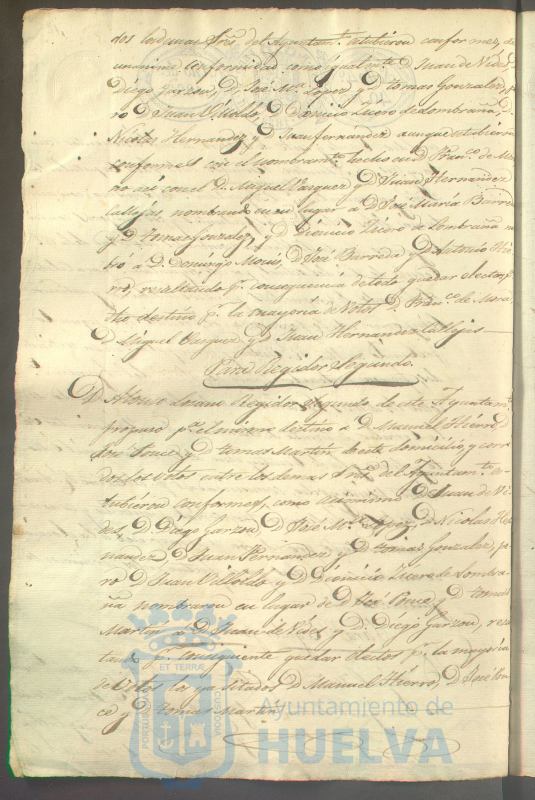 dos los demas Sres del Ayuntamto estubieron conformes, de
unanime conformidad como igualmte D Juan de Vides
Diego Garzon, D. José Ma Lopez y D tomas Gonzalez, pe
ro D Juan Villoldo, D Dionicio Lucro de Lombraña, D.
Nicolas Hernandez y D Juan fernandez aunque estubieron
conformes con el nombramto hecho en D Franco de Mo
ra así con el D. Miguel Vazquez y D Juan Hernandez
Callejas, nombran en su lugar a D José María Barreda
y D tomas Gonzalez, y D Dionicio de Lombraña no
bró a D. Domingo D José Barreda y D Antonio Hie
rro, resultando pr consequencia de todo quedar electos pa
dho destino pr la mayoria de Votos D. Franco de Mora
D Miguel Vazquez y D Juan Hernandez Callejas
Para Regidor Segundo.
D Alonso Lozano Regidor segundo de este Ayuntamto
propuso pa el mismo destino a D Manuel Hierro, D
José Ponce y D tomas Martin de este domicilio y corri
dos los Votos entre los demas Sres del Ayuntamto es
tubieron conformes, como asimismo D Juan de Vi
des, D Diego Garzon, D José Ma Lopez, D Nicolas Her
nandez D Juan Fernandez y D tomas Gonzalez, pe
ro D Juan Villoldo y D Dionicio Lucro de Lombra
ña nombraron en lugar de D José Ponce y D tomas
Martin a D Juan de Vides y D. Diego Garzon, resul
tando pr consiguiente quedar electos pr la mayoria
de Votos los ya citados D Manuel Hierro, D José Pon
ce y D tomas Martin
PORTUS MARIS
ET TERRÆ
CUSTODIA
Ayuntamiento de
HUELVA